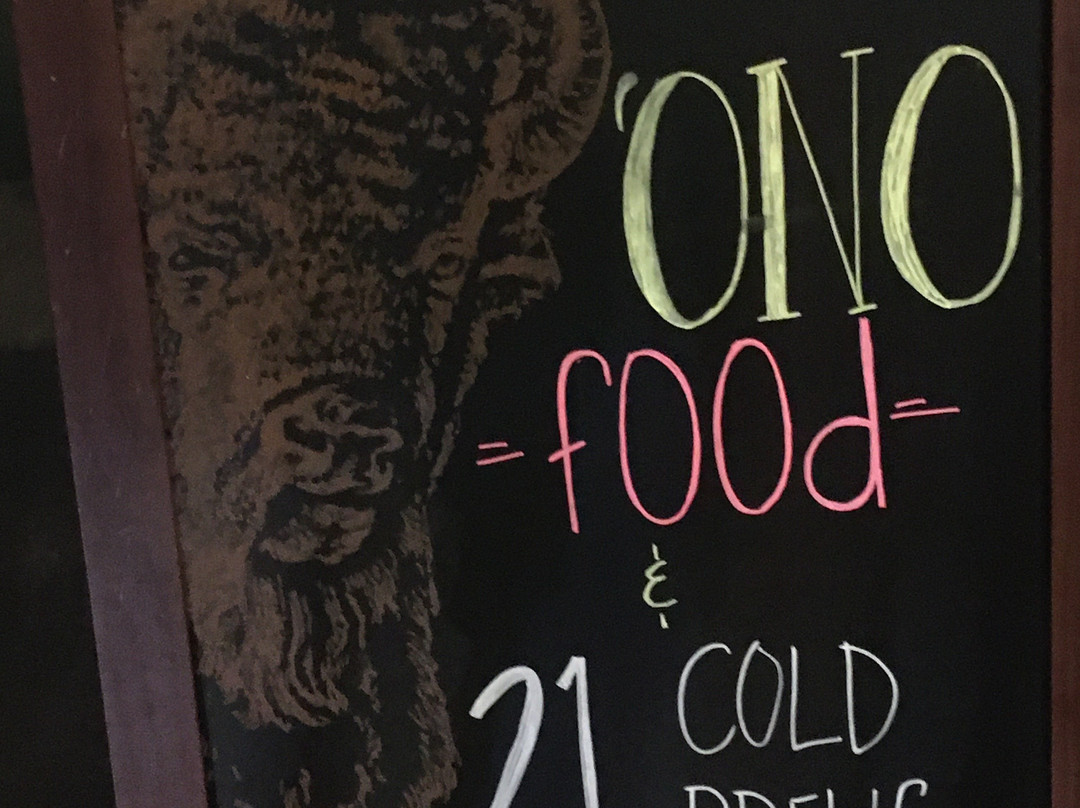 'ONO
=fOOd=
&
21 COLD